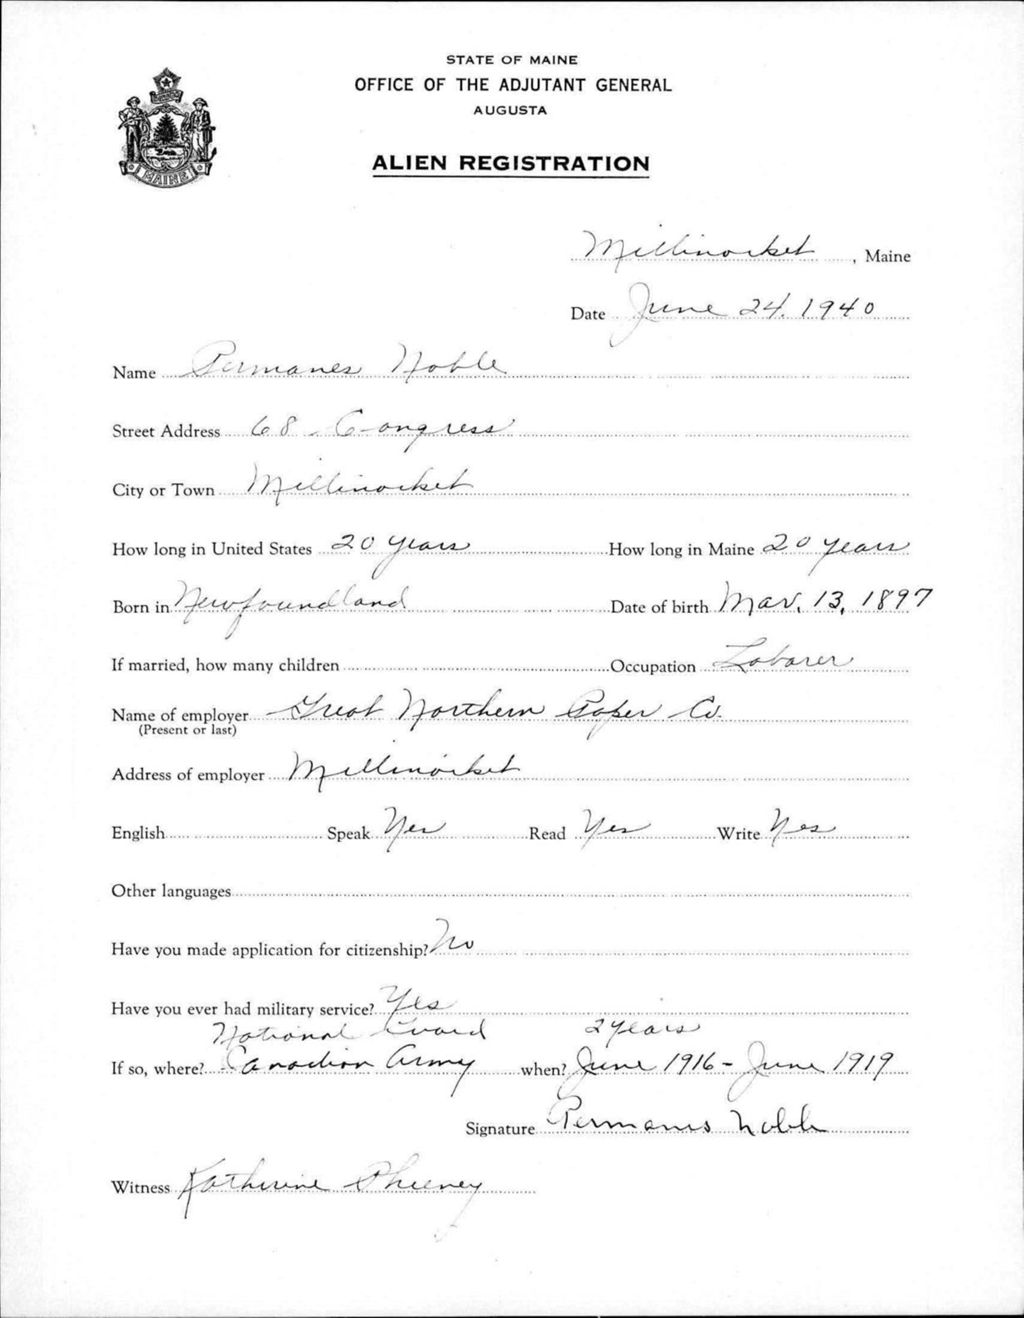 STATE OF MAINE
OFFICE OF THE ADJUTANT GENERAL
AUGUSTA
ALIEN REGISTRATION
MAINE
Millinocket, Maine
Date June 24, 1940
Name Permanes Noble
Street Address 68 - Congress
City or Town Millinocket
How long in United States 20 years How long in Maine 20 years
Born in Newfoundland Date of birth Mar. 13, 1897
If married, how many children Occupation Laborer
Name of employer Great Northern Paper Co.
(Present or last)
Address of employer Millinocket
English Speak Yes Read Yes Write Yes
Other languages
Have you made application for citizenship? No
Have you ever had military service? Yes
National Guard 2 years
If so, where? Canadian Army when? June 1916 - June 1919
Signature Permanes Noble
Witness Katherine Sheeney